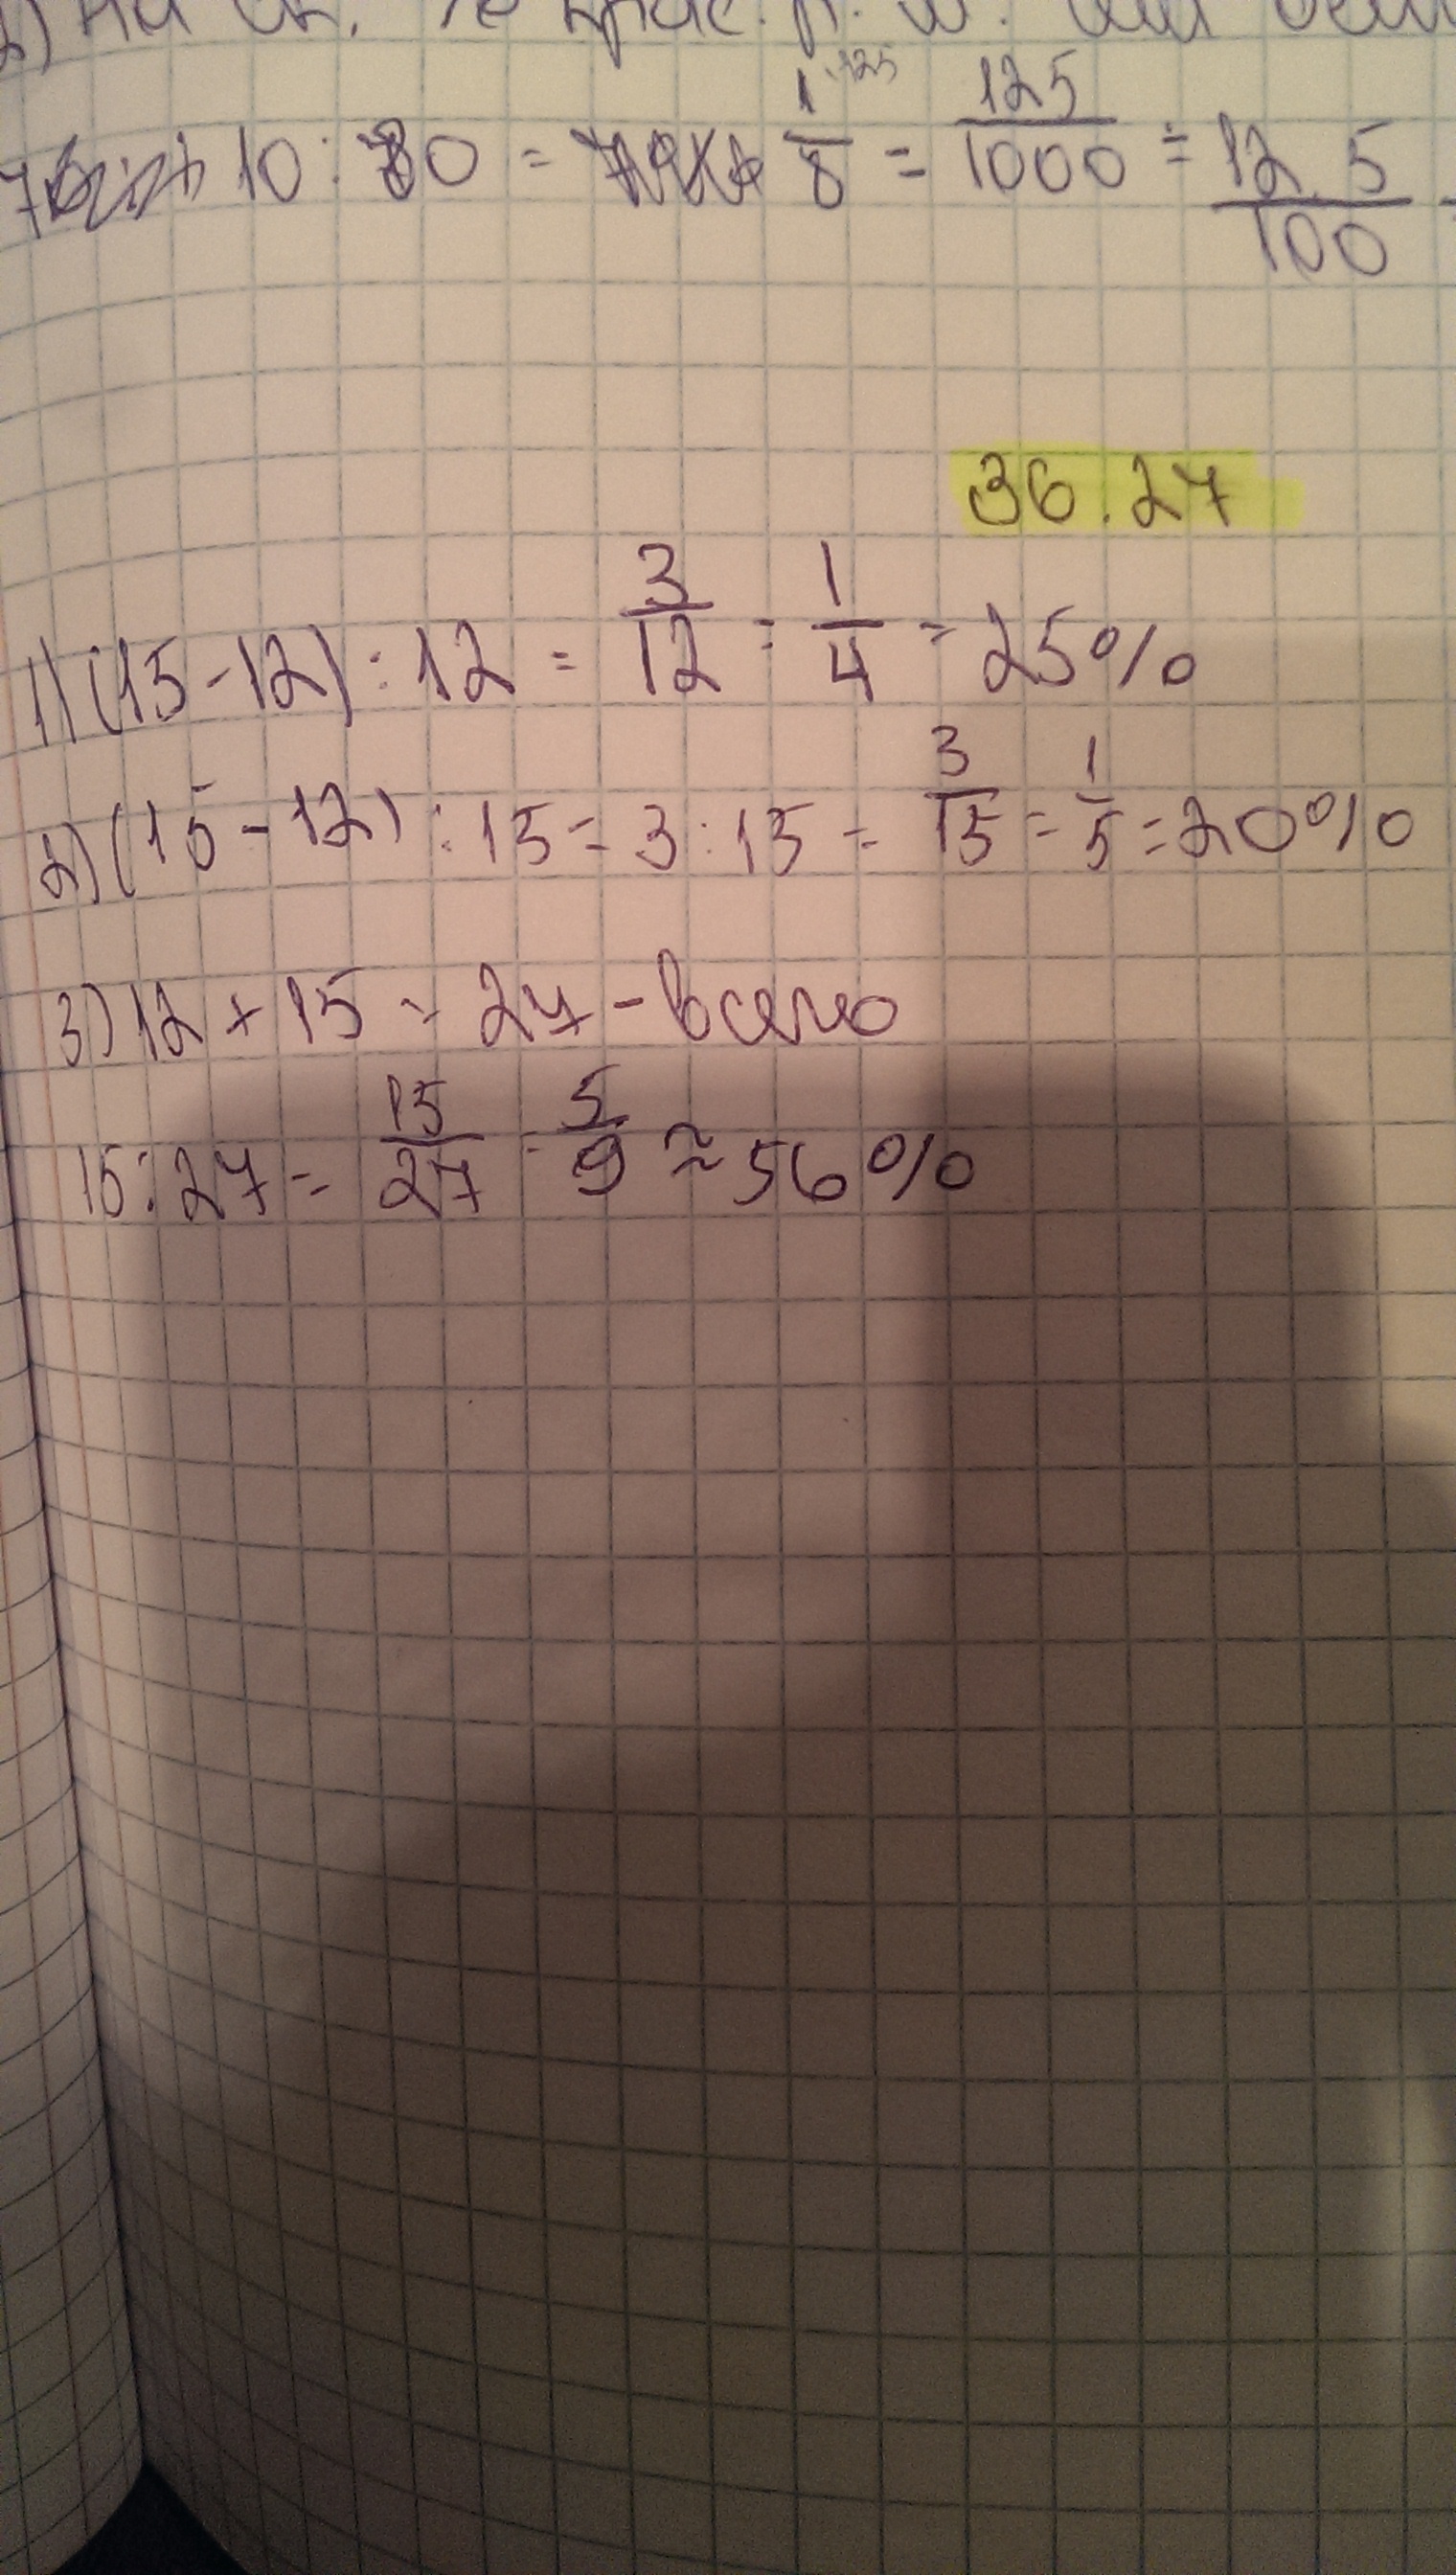 10 : 80 = 1/8 ·125 = 125/1000 = 12,5/100
36.27
1) (15-12) : 12 = 3/12 = 1/4 = 25%
2) (15-12) : 15 = 3 : 15 = 3/15 = 1/5 = 20%
3) 12 + 15 = 27 - всего
15 : 27 = 15/27 = 5/9 ≈ 56%